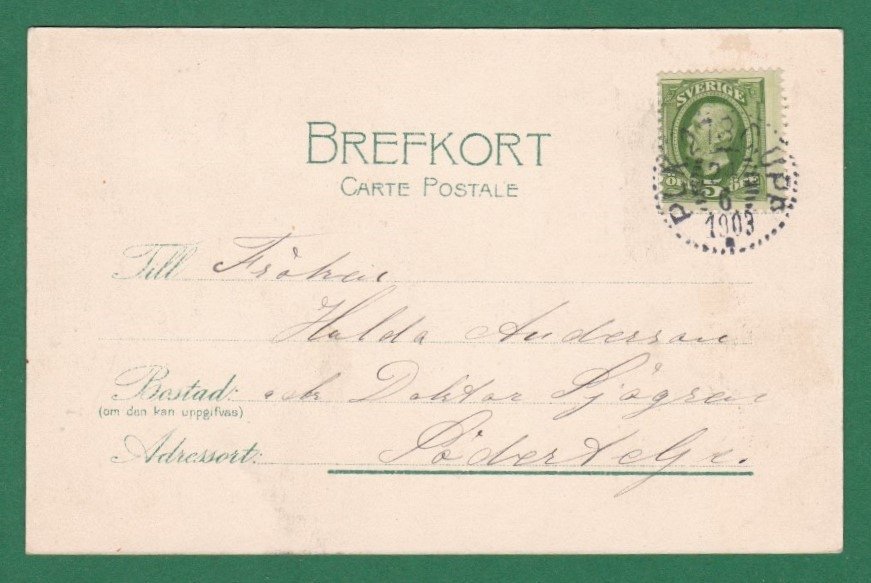 BREFKORT
CARTE POSTALE
SVERIGE
5
1903
Till Fröken
Hulda Anderson
Bostad: Doktor Sjögren
(om den kan uppgifvas)
Adressort: Södertelge.